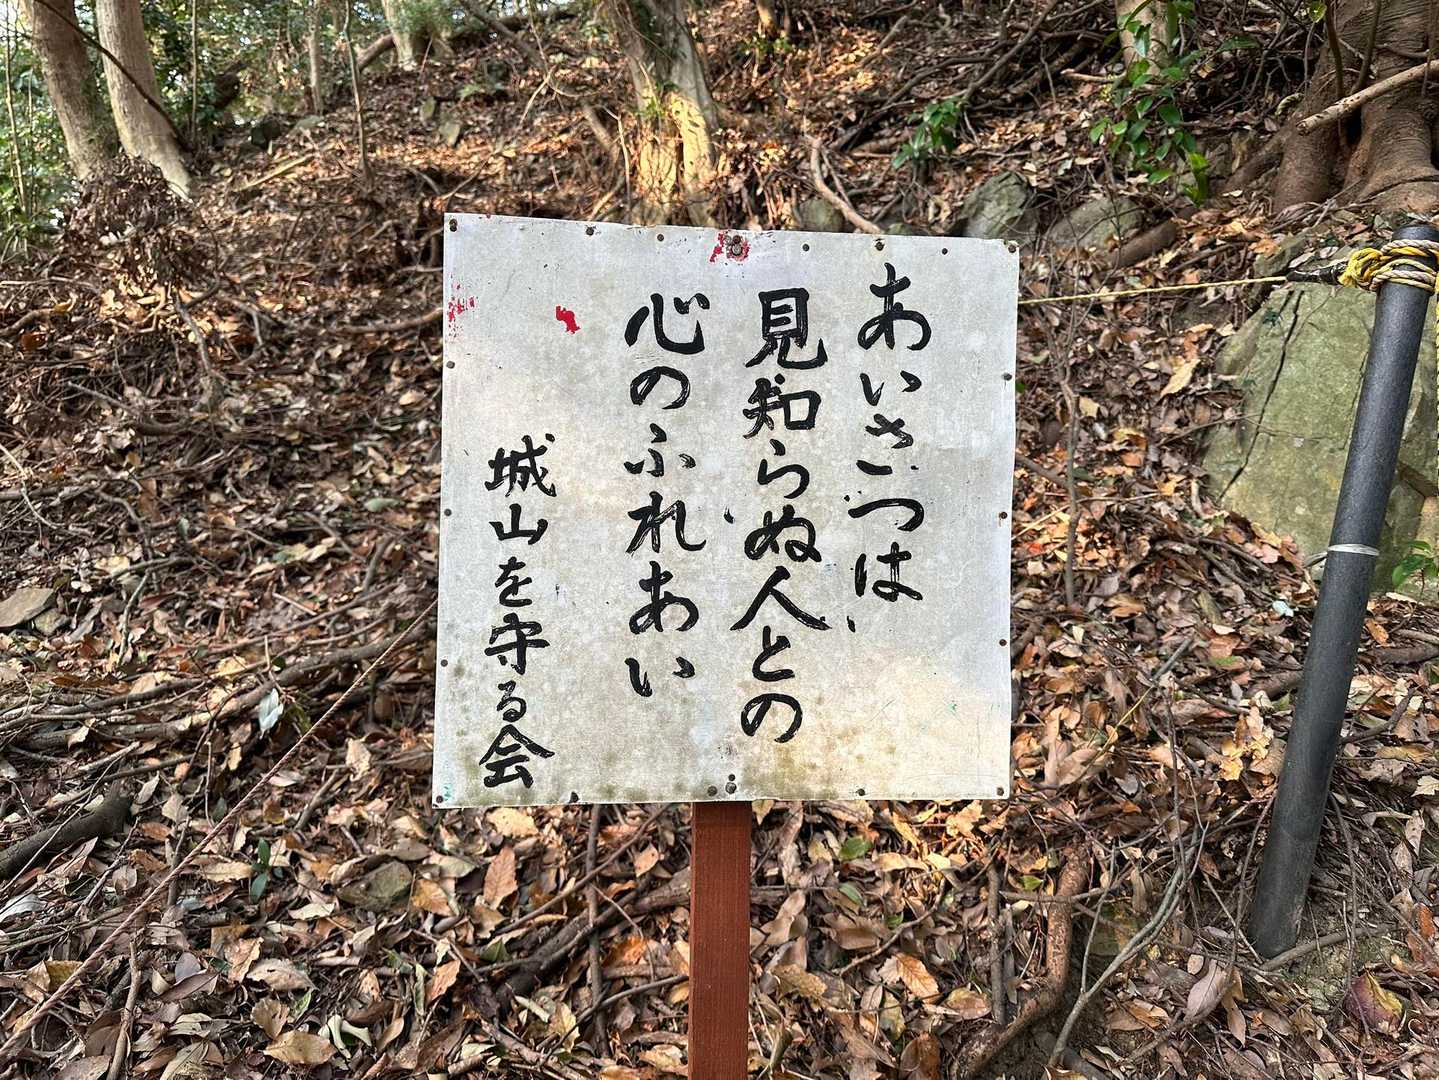 あいさつは
見知らぬ人との
心のふれあい
城山を守る会